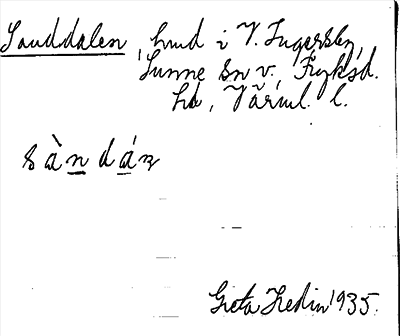 Sanddalen, hmd i V. Ingersby,
Sunne sn v., Fryksd.
hd, Värml. l.
sàndáṇ
Greta Hedin 1935.